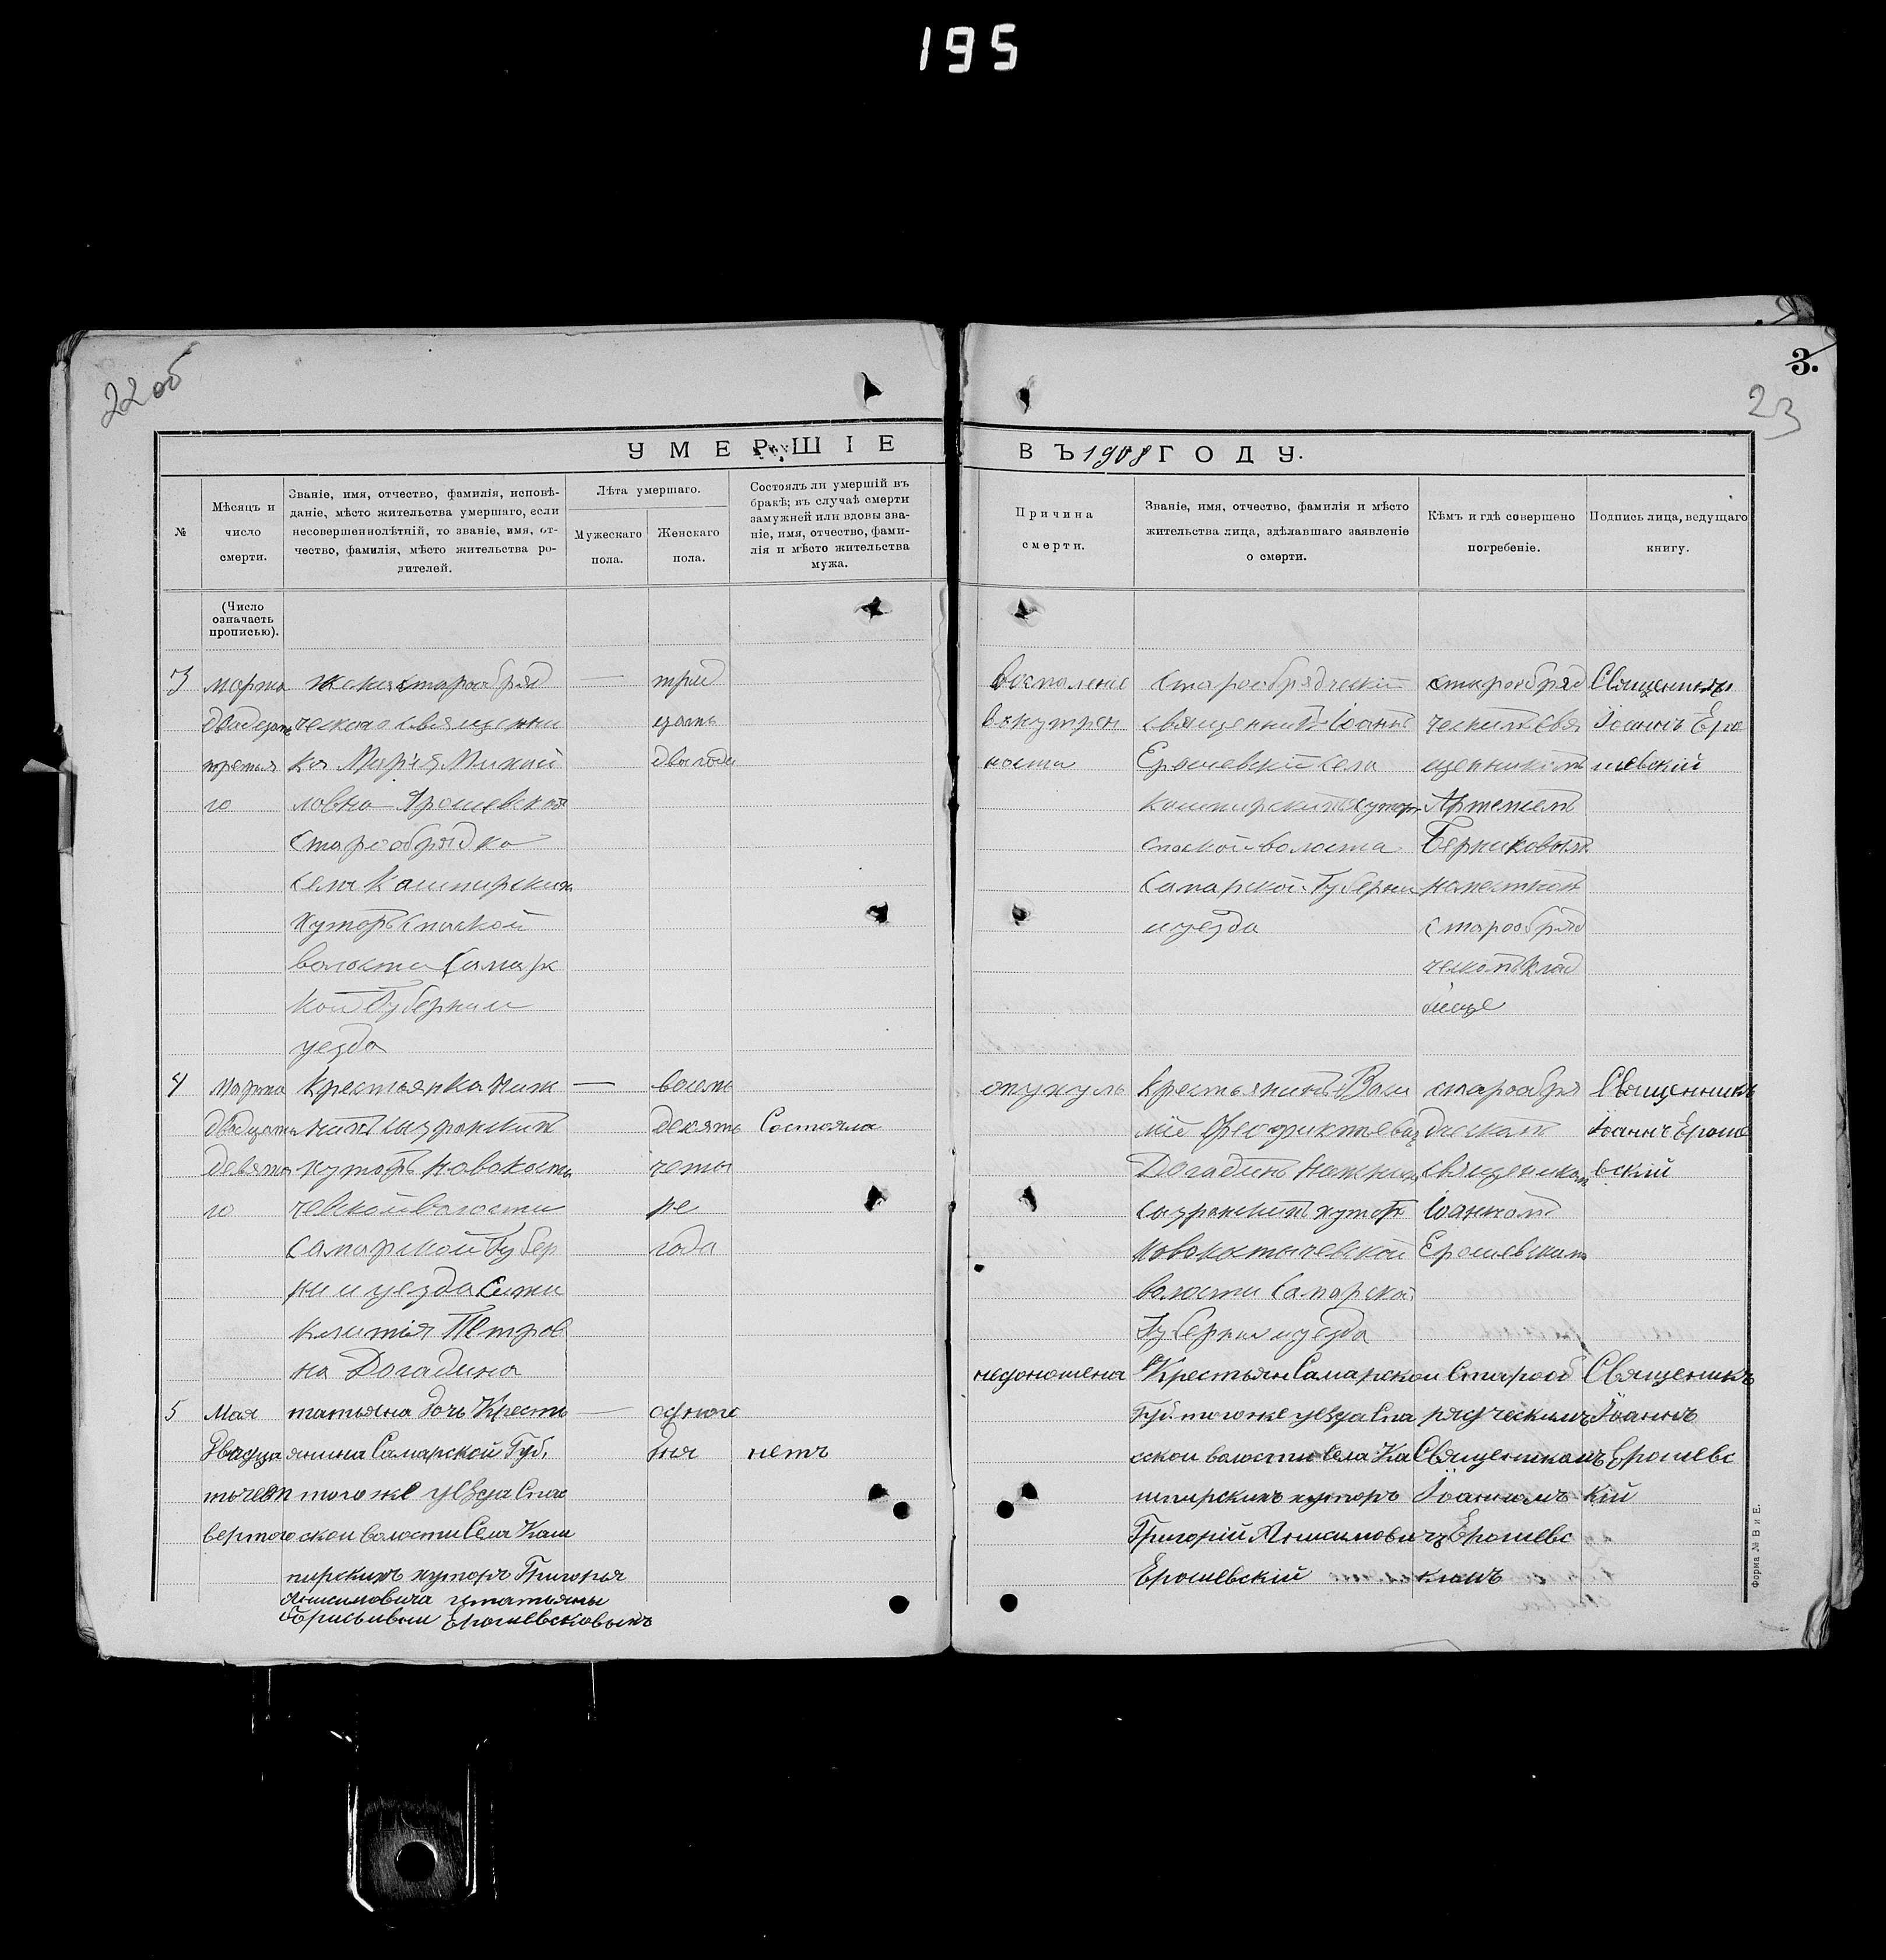 195
22об
3.
23
УМЕРШІЕ
ВЪ 1908 ГОДУ.
№
Мѣсяцъ и
число
смерти.
Званіе, имя, отчество, фамилія, исповѣ-
даніе, мѣсто жительства умершаго, если
несовершеннолѣтній, то званіе, имя, от-
чество, фамилія, мѣсто жительства ро-
дителей.
Лѣта умершаго.
Мужескаго
пола.
Женскаго
пола.
Состоялъ ли умершій въ
бракѣ; въ случаѣ смерти
замужней или вдовы зва-
ніе, имя, отчество, фами-
лія и мѣсто жительства
мужа.
Причина
смерти.
Званіе, имя, отчество, фамилія и мѣсто
жительства лица, здѣлавшаго заявленіе
о смерти.
Кѣмъ и гдѣ совершено
погребеніе.
Подпись лица, ведущаго
книгу.
(Число
означаетъ
прописью).
3
марта
третья
го
жена старообряд
ческаго священни
ка Марія Михай
ловна
старообрядка
села Кашпирскихъ
хуторъ спаской
волости Самарс
кой Губернии
уезда
—
трид
цать
два года
воспаление
внутрен
ности
старообрядческий
священникъ Іоаннъ
Ерошевский села
Кашпирскихъ хутор
спаской волости
Самарской Губернии
и уезда
старообряд
ческимъ свя
щенникомъ
Артемием
наместном
старообряд
ческомъ клад
бище
Священникъ
Іоаннъ Еро
шевскій
4
Марта
двадцать
девято
го
Крестьянка Ниж
нихъ сызранских
хуторъ новокосты
чевской волости
Самарской Губер
нии уезда
Петров
на Догадина
—
восемь
десять
четы
ре
года
Состояла
опухуль
Крестьянинъ Васи
лій
Догадинъ нижних
сызранскихъ хуторъ
Новокостычевской
волости Самарской
Губернии уезда
старообря
дческимъ
священиком
Іоанномъ
Ерошевским
Священникъ
Іоаннъ Ероше
вскій
5
Мая
двадца
тьчет
вертого
татьяна дочь Кресть
янина Самарской Губ.
того же уезда Спас
ской волости Села Каш
пирскихъ хуторъ Григорья
Анисимовича и татьяны
Ерошевсковыхъ
—
одного
дня
нетъ
недоношена
Крестьян Самарской
Губ. того же уезда Спа
сской волости села Ка
шпирскихъ хуторъ
Григорій Анисимовичъ
Ерошевскій
Старооб
рядческимъ
Священикомъ
Іоанномъ
Ерошевс
кимъ
Священикъ
Іоаннъ
Ерошевс
кій
Форма № В и Е.